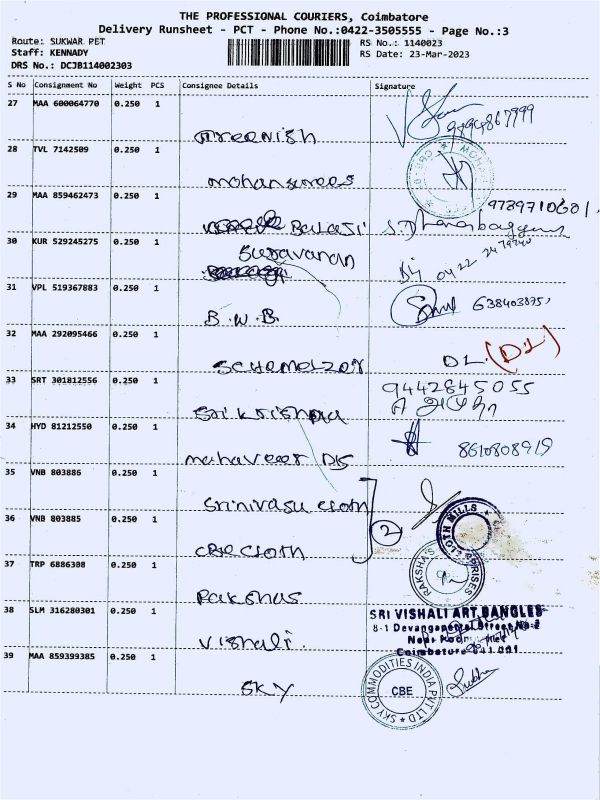 THE PROFESSIONAL COURIERS, Coimbatore
Delivery Runsheet - PCT - Phone No.:0422-3505555 - Page No.:3
Route: SUKWAR PET
RS No.: 1140023
Staff: KENNADY
RS Date: 23-Mar-2023
DRS No.: DCJB114002303
S No Consignment No Weight PCS Consignee Details Signature
27 MAA 600064770 0.250 1
28 TVL 7142509 0.250 1
mohansurees
29 MAA 859462473 0.250 1
9789710601
Balaji
30 KUR 529245275 0.250 1
0422 2479240
31 VPL 519367883 0.250 1
B.W.B.
32 MAA 292095466 0.250 1
DL. (D1)
33 SRT 301812556 0.250 1
9442845055
Sri Krishna
34 HYD 81212550 0.250 1
8610808919
mahaveer DIS
35 VNB 803886 0.250 1
Srinivasu cloth
2
36 VNB 803885 0.250 1
CLOTH MILLS
CBE CLOTH
37 TRP 6886308 0.250 1
RAKSHA'S
Rakshas
38 SLM 316280301 0.250 1
SRI VISHALI ART BANGLES
8-1 Devangapettai Street No:2
Near Poo Market
Coimbatore 641 001
Vishali.
39 MAA 859399385 0.250 1
SKY
SKY COMMODITIES INDIA PVT LTD
CBE